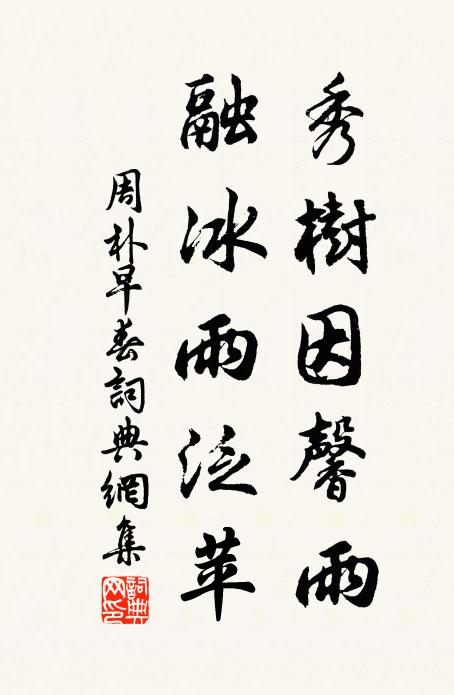 秀樹因馨雨
融冰雨泛苹
周朴早春詞典網集
詞典网印